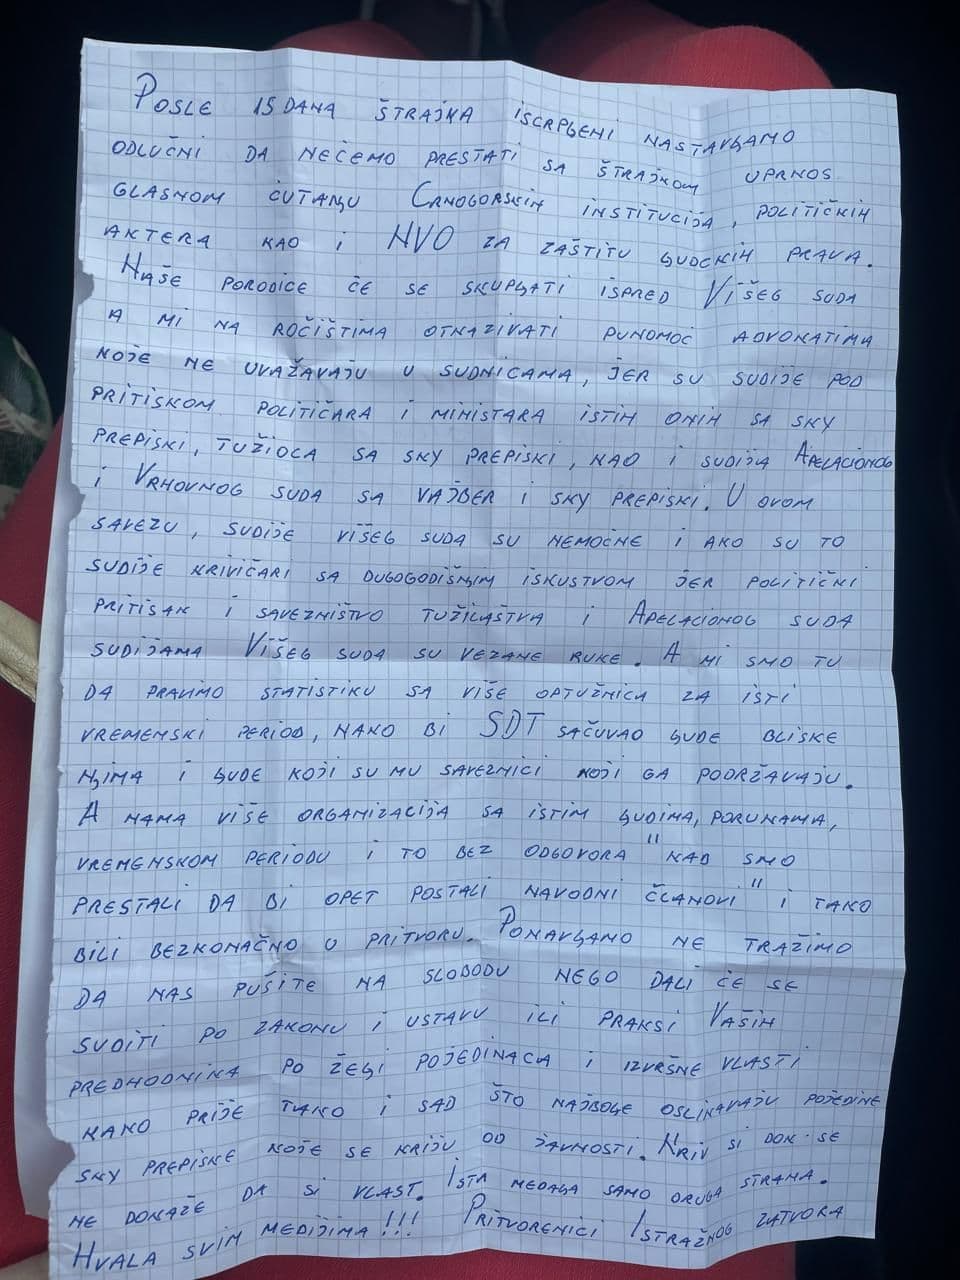 POSLE 15 DANA ŠTRAJKA ISCRPLJENI NASTAVLJAMO
ODLUČNI DA NEĆEMO PRESTATI SA ŠTRAJKOM UPRNOS
GLASNOM ĆUTANJU CRNOGORSKIH INSTITUCIJA, POLITIČKIH
AKTERA KAO I NVO ZA ZAŠTITU LJUDCKIH PRAVA.
NAŠE PORODICE ĆE SE SKUPLJATI ISPRED VIŠEG SUDA
A MI NA ROČIŠTIMA OTKAZIVATI PUNOMOĆ ADVOKATIMA
KOJE NE UVAŽAVAJU U SUDNICAMA, JER SU SUDIJE POD
PRITISKOM POLITIČARA I MINISTARA ISTIH ONIH SA SKY
PREPISKI, TUŽIOCA SA SKY PREPISKI, KAO I SUDIJA APELACIONOG
I VRHOVNOG SUDA SA VAJBER I SKY PREPISKI. U OVOM
SAVEZU, SUDIJE VIŠEG SUDA SU NEMOĆNE I AKO SU TO
SUDIJE KRIVIČARI SA DUGOGODIŠNJIM ISKUSTVOM JER POLITIČKI
PRITISAK I SAVEZNIŠTVO TUŽILAŠTVA I APELACIONOG SUDA
SUDIJAMA VIŠEG SUDA SU VEZANE RUKE. A MI SMO TU
DA PRAVIMO STATISTIKU SA VIŠE OPTUŽNICA ZA ISTI
VREMENSKI PERIOD, KAKO BI SDT SAČUVAO LJUDE BLISKE
NJIMA I LJUDE KOJI SU MU SAVEZNICI KOJI GA PODRŽAVAJU.
A NAMA VIŠE ORGANIZACIJA SA ISTIM LJUDIMA, PORUKAMA,
VREMENSKOM PERIODU I TO BEZ ODGOVORA "KAD SMO
PRESTALI DA BI OPET POSTALI NAVODNI ČLANOVI" I TAKO
BILI BEZKONAČNO U PRITVORU. PONAVLJAMO NE TRAŽIMO
DA NAS PUŠITE NA SLOBODU NEGO DALI ĆE SE
SUDITI PO ZAKONU I USTAVU ILI PRAKSI VAŠIH
PREDHODNIKA PO ŽELJI POJEDINACA I IZVRŠNE VLASTI
KAKO PRIJE TAKO I SAD ŠTO NAJBOLJE OSLIKAVAJU POJEDINE
SKY PREPISKE KOJE SE KRIJU OD JAVNOSTI. KRIV SI DOK SE
NE DOKAŽE DA SI VLAST. ISTA MEDALJA SAMO DRUGA STRANA.
HVALA SVIM MEDIJIMA!!! PRITVORENICI ISTRAŽNOG ZATVORA